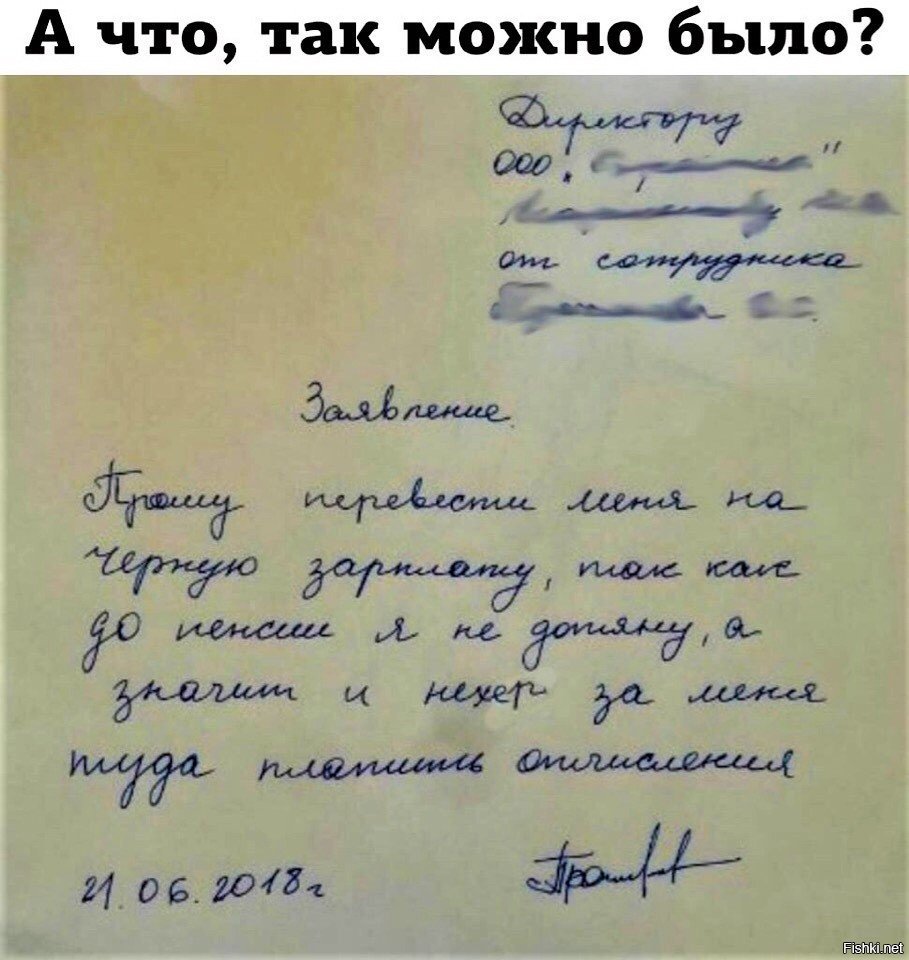 А что, так можно было?
Директору
ООО „ "
от сотрудника
Заявление
Прошу перевести меня на
черную зарплату, так как
до пенсии я не дотяну, а
значит и нехер за меня
туда платить отчисления
21.06.2018г
Fishki.net